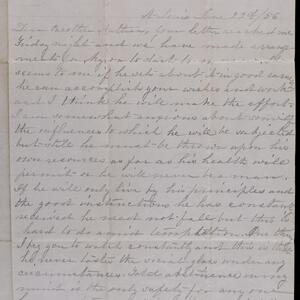 St Louis June 22d/56
Dear Brother Nathan, Your letter reached me
Friday night and we have made arrange-
ments for to start
seems to me if he sets about it in good earnest
he can accomplish your wishes and
and I think he will make the effort.
I am somewhat anxious about some of
the influences to which he will be subjected
but still he must be thrown upon his
own resources as far as his health will
permit or he will never be a man.
If he will only live by his principles and
the good instructions he has constantly
received he need not fail but this is
hard to do against temptation. One thing
I beg you to watch constantly and this is that
he never tastes the social glass under any
circumstances. Total abstinence in my
mind is the only safety for any one